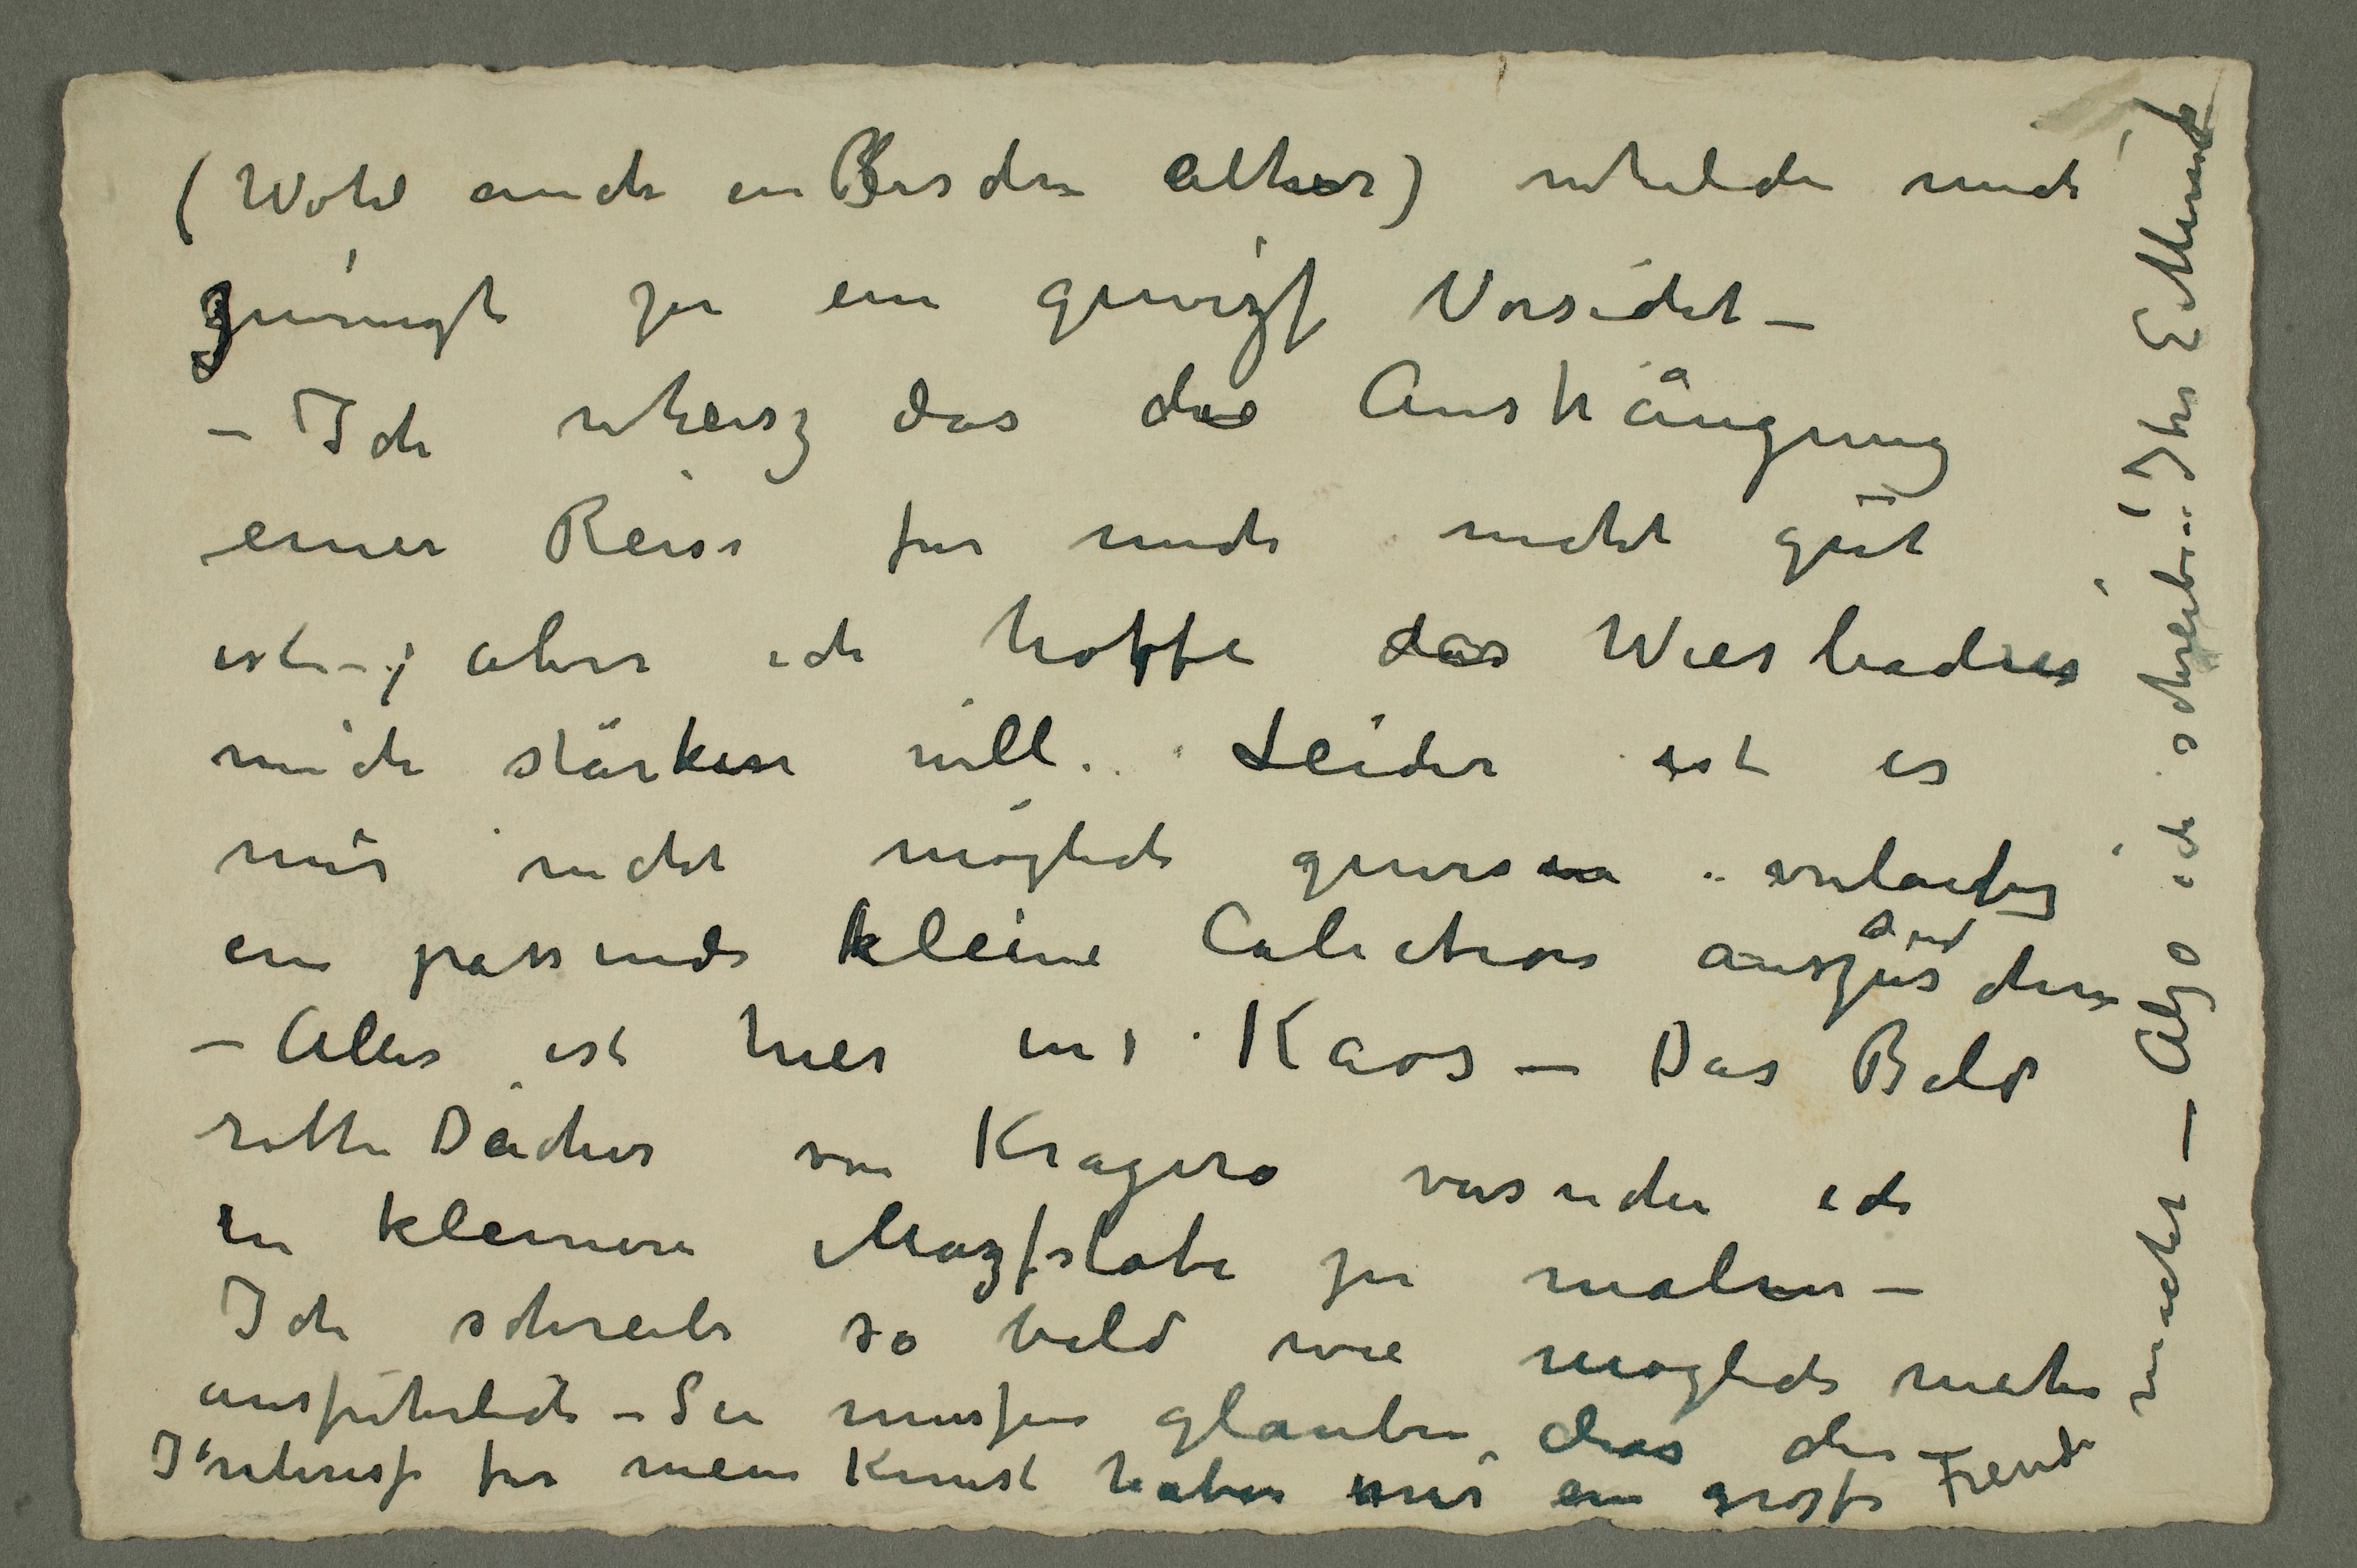 (Wohl auch ein Bischen älther) whelche mich
gezwingt zu eine gewizse Vorsicht –
– Ich wheisz das die Anstrångung
einer Reise fur mich nicht gut
ist –; aber ich hoffe das Wiesbaden
mich stärken will. Leider ist es
mir nicht möglich gewesen vorlaufig
ein passende kleine Colection auszusuchen
– Alles ist hier in Kaos – Das Bild
rothe Dächer von Kragerø versuche ich
in kleinere Mazfstabe zu malen –
Ich schreibe so bald wie möglich mehr
ausführlich – Sie mussen glauben das die
Interesse fur meine Kunst haben mir eine grosse Freude
macht – Also ich schreibe. Ihr E Munch